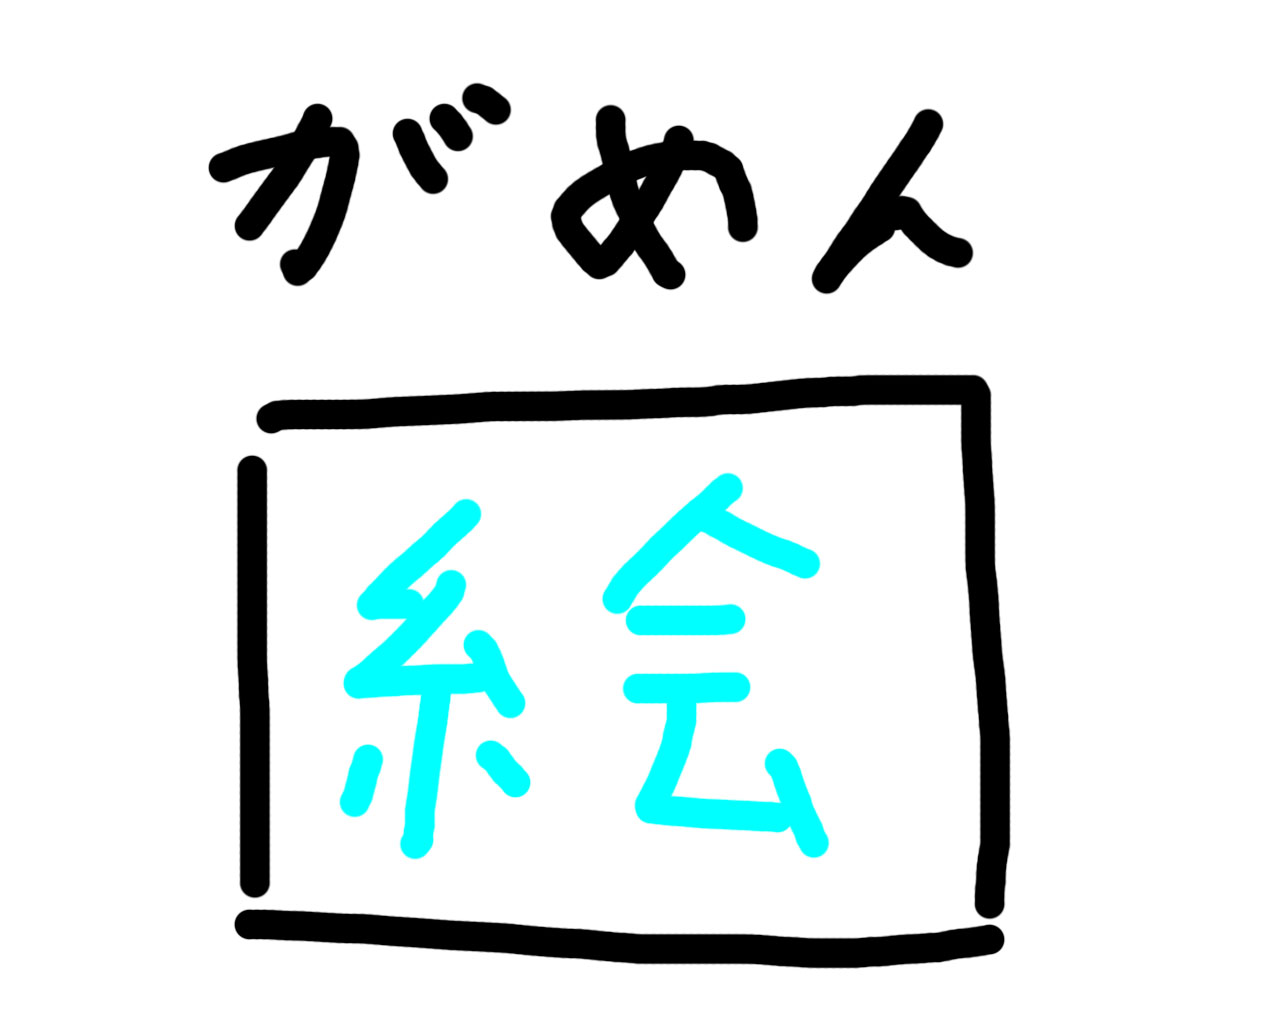 がめん
絵